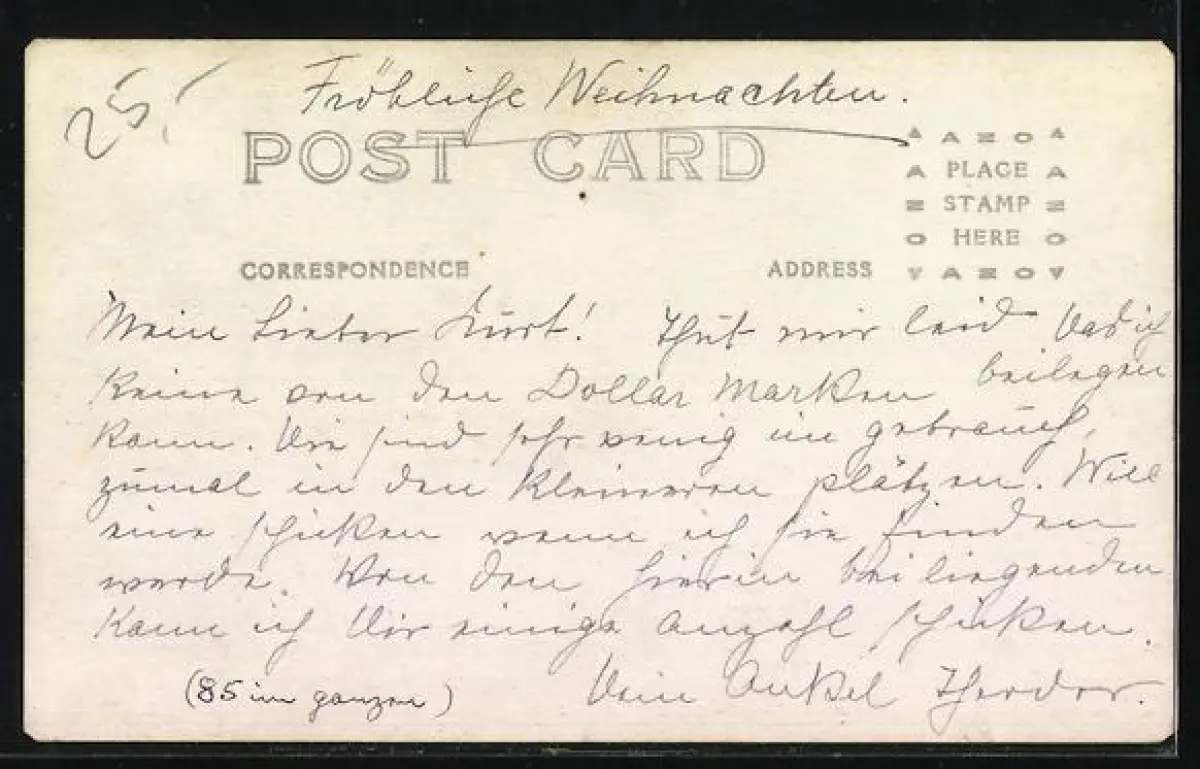 25,-
Fröhliche Weihnachten.
POST CARD
AZO
PLACE
STAMP
HERE
AZO
CORRESPONDENCE
ADDRESS
Mein Lieber Kurt! Thut mir leid das ich
keine von den Dollar Marken beilegen
kann. Die sind sehr wenig im gebrauch,
zumal in den kleineren plätzen. Will
eine schicken wenn ich sie finden
werde. Von den hierin bei liegenden
kann ich Dir einige anzahl schicken.
(85 im ganzen) Dein Onkel Theodor.